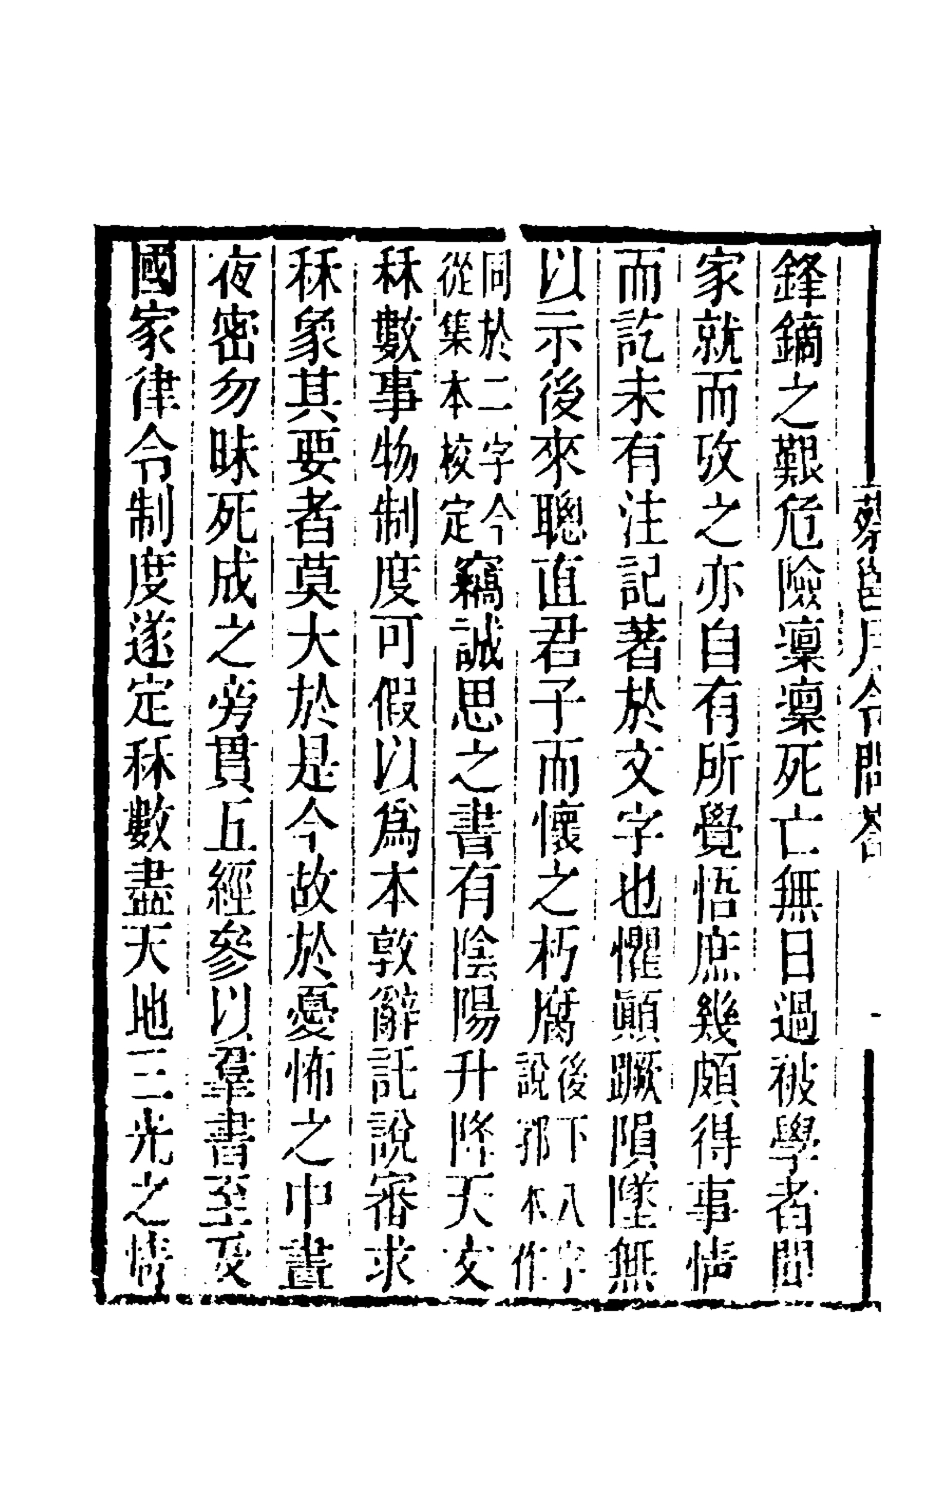 蔡邕月令問荅 一
鋒鏑之艱危險凜凜死亡無日過被學者聞
家就而攷之亦自有所覺悟庶幾頗得事情
而訖未有注記著於文字也懼顚蹶隕墜無
以示後來聰直君子而懷之朽腐後下八字說郛本作
同於二字今從集本校定竊誠思之書有陰陽升降天文
秝數事物制度可假以爲本敦辭託說審求
秝象其要者莫大於是今故於憂怖之中晝
夜密勿昧死成之旁貫五經參以羣書至及
國家律令制度遂定秝數盡天地三光之情